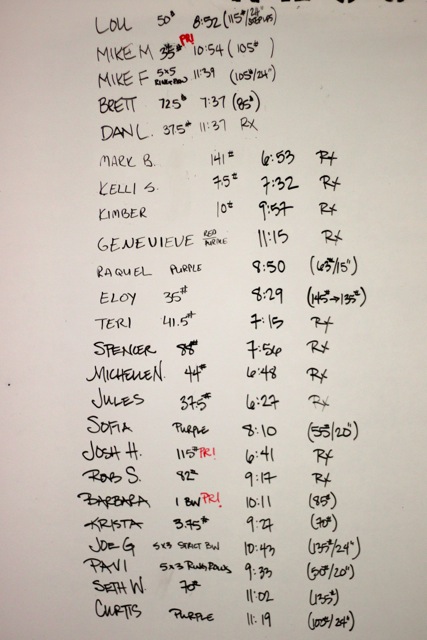 LOU 50# 8:52 (115#/24" STEP UPS)
MIKE M 35# PR! 10:54 (105#)
MIKE F 5x5 RING ROW 11:39 (105#/24")
BRETT 72.5# 7:37 (85#)
DAN L. 37.5# 11:37 RX
MARK B. 141# 6:53 RX
KELLI S. 7.5# 7:32 RX
KIMBER 10# 9:57 RX
GENEVIEVE RED/PURPLE 11:15 RX
RAQUEL PURPLE 8:50 (63#/15")
ELOY 35# 8:29 (145#→135#)
TERI 41.5# 7:15 RX
SPENCER 88# 7:56 RX
MICHELLE N. 44# 6:48 RX
JULES 37.5# 6:27 RX
SOFIA PURPLE 8:10 (55#/20")
JOSH H. 115# PR! 6:41 RX
ROB S. 82# 9:17 RX
BARBARA 1 BW PR! 10:11 (85#)
KRISTA 3.75# 9:27 (70#)
JOE G 5x3 STRICT BW 10:43 (135#/24")
PAVI 5x3 RING ROWS 9:33 (50#/20")
SETH W. 70# 11:02 (135#)
CURTIS PURPLE 11:19 (100#/24")